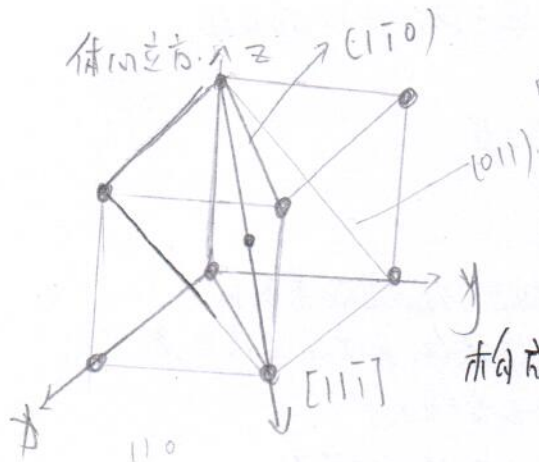 体心立方
z
(11̄0)
(011)
y
[111̄]
x
110